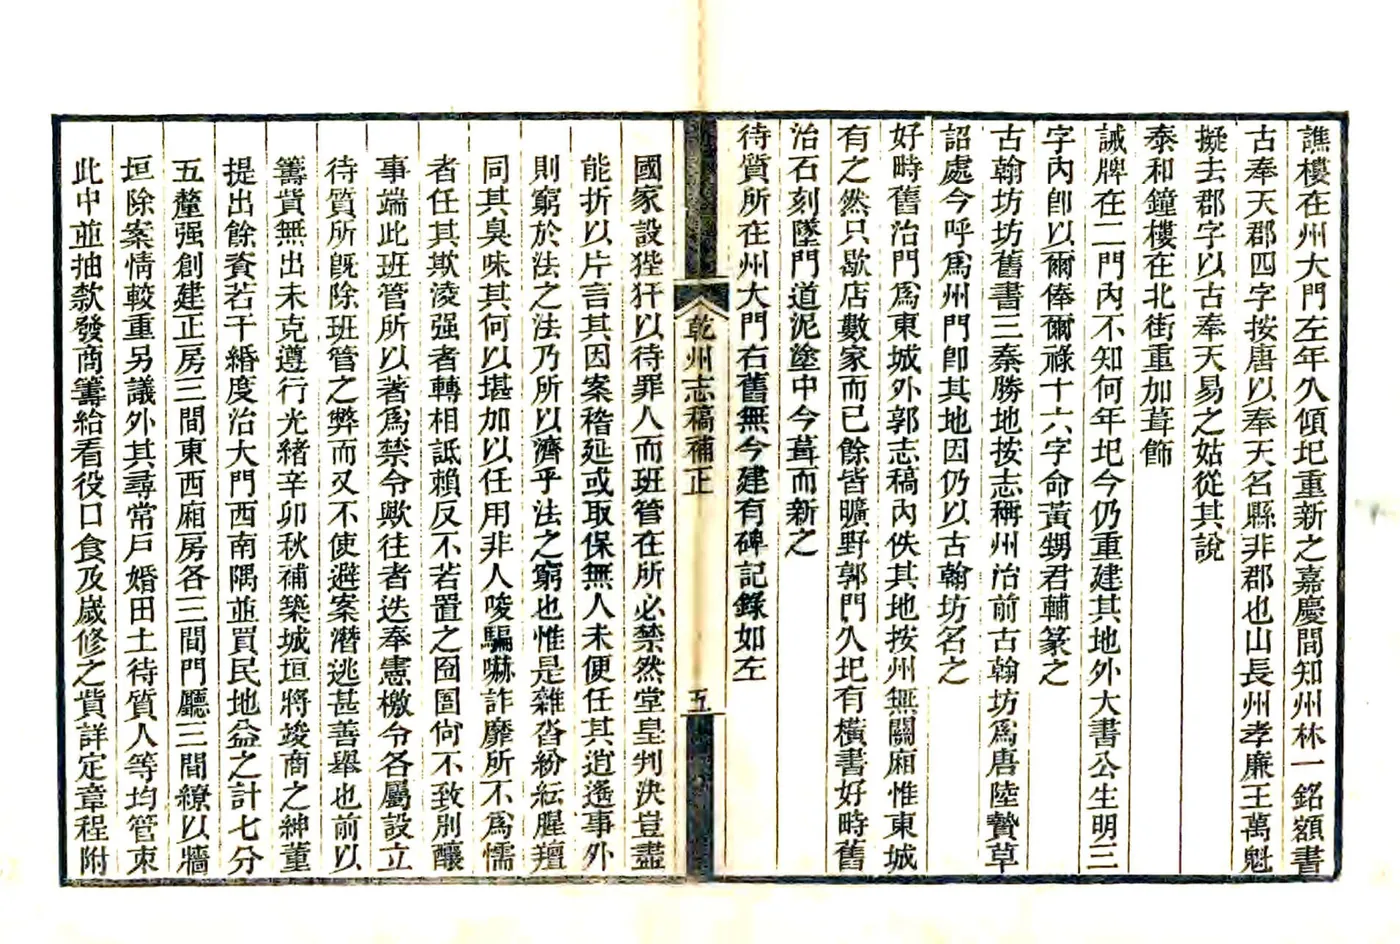 譙樓在州大門左年久傾圯重新之嘉慶間知州林一銘額書
古奉天郡四字按唐以奉天名縣非郡也山長州孝廉王萬魁
擬去郡字以古奉天易之姑從其說
泰和鐘樓在北街重加葺飾
誡牌在二門內不知何年圯今仍重建其地外大書公生明三
字內卽以爾俸爾祿十六字命黃甥君輔篆之
古翰坊坊舊書三秦勝地按志稱州治前古翰坊爲唐陸贄草
詔處今呼爲州門卽其地因仍以古翰坊名之
好畤舊治門爲東城外郭志稿內佚其地按州無關廂惟東城
有之然只歇店數家而已餘皆曠野郭門久圯有橫書好畤舊
治石刻墜門道泥塗中今葺而新之
待質所在州大門右舊無今建有碑記錄如左
乾州志稿補正
五
國家設狴犴以待罪人而班管在所必禁然堂皇判決豈盡
能折以片言其因案稽延或取保無人未便任其逍遙事外
則窮於法之法乃所以濟乎法之窮也惟是雜沓紛紜腥羶
同其臭味其何以堪加以任用非人唆騙嚇詐靡所不爲懦
者任其欺淩强者轉相詆賴反不若置之囹圄尙不致別釀
事端此班管所以著爲禁令歟往者迭奉憲檄令各屬設立
待質所旣除班管之弊而又不使避案潛逃甚善舉也前以
籌貲無出未克遵行光緒辛卯秋補築城垣將竣商之紳董
提出餘資若干緡度治大門西南隅並買民地益之計七分
五釐强創建正房三間東西廂房各三間門廳三間繚以牆
垣除案情較重另議外其尋常戶婚田土待質人等均管束
此中並抽欵發商籌給看役口食及歲修之貲詳定章程附